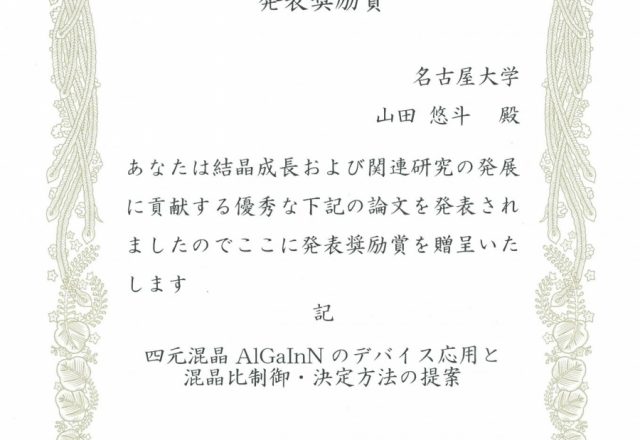 発表奨励賞
名古屋大学
山田 悠斗 殿
あなたは結晶成長および関連研究の発展
に貢献する優秀な下記の論文を発表され
ましたのでここに発表奨励賞を贈呈いた
します
記
四元混晶 AlGaInN のデバイス応用と
混晶比制御・決定方法の提案